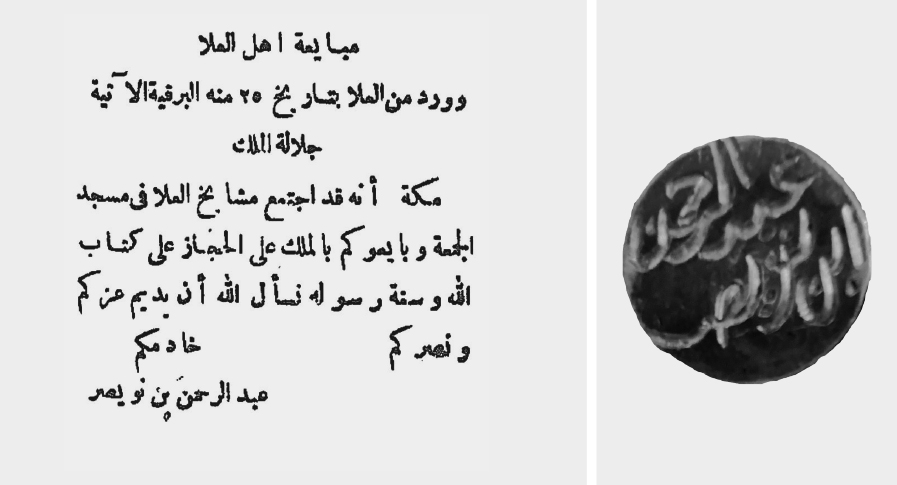 مبايعة اهل العلا
وورد من العلا بتاريخ ٢٥ منه البرقية الآتية
جلالة الملك
مكة أنه قد اجتمع مشايخ العلا في مسجد
الجمعة وبايعوكم بالملك على الحجاز على كتاب
الله وسنة رسوله نسأل الله أن يديم عزكم
ونصركم خادمكم
عبد الرحمن بن نويصر
عبد الرحمن